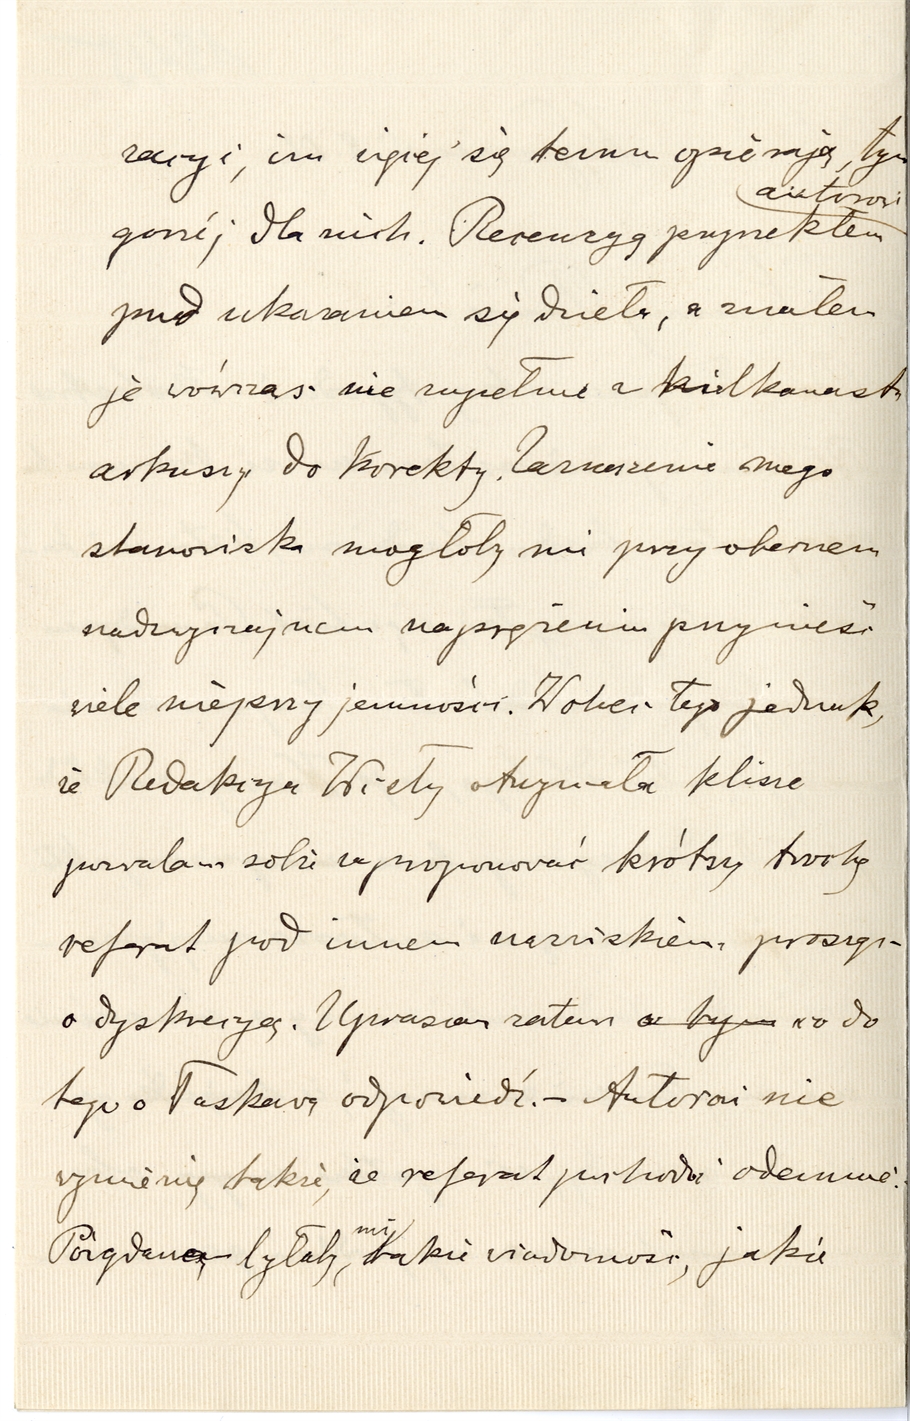 racyi, im więcej się temu opierają, tym
autorowi
gorzéj dla nich. Recenzyą przyrzekłem
przed ukazaniem się dzieła, a znałem
je wówczas nie zupełnie z kilkanastu
arkuszy do korekty. Zaznaczenie mego
stanowiska mogłoby mi przy obecnem
nadzwyczajnem naprężeniu przynieść
wiele nieprzyjemności. Wobec tego jednak,
że Redakcya Wisły otrzymała klisze
pozwalam sobie zaproponować krótszy trochę
referat pod innem nazwiskiem, prosząc
o dyskrecyą. Upraszam zatem w tym co do
tego o łaskawą odpowiedź. – Autorowi nie
wymienię także, że referat pochodzi odemnie.
Pożądaną byłaby mi także wiadomość, jakie